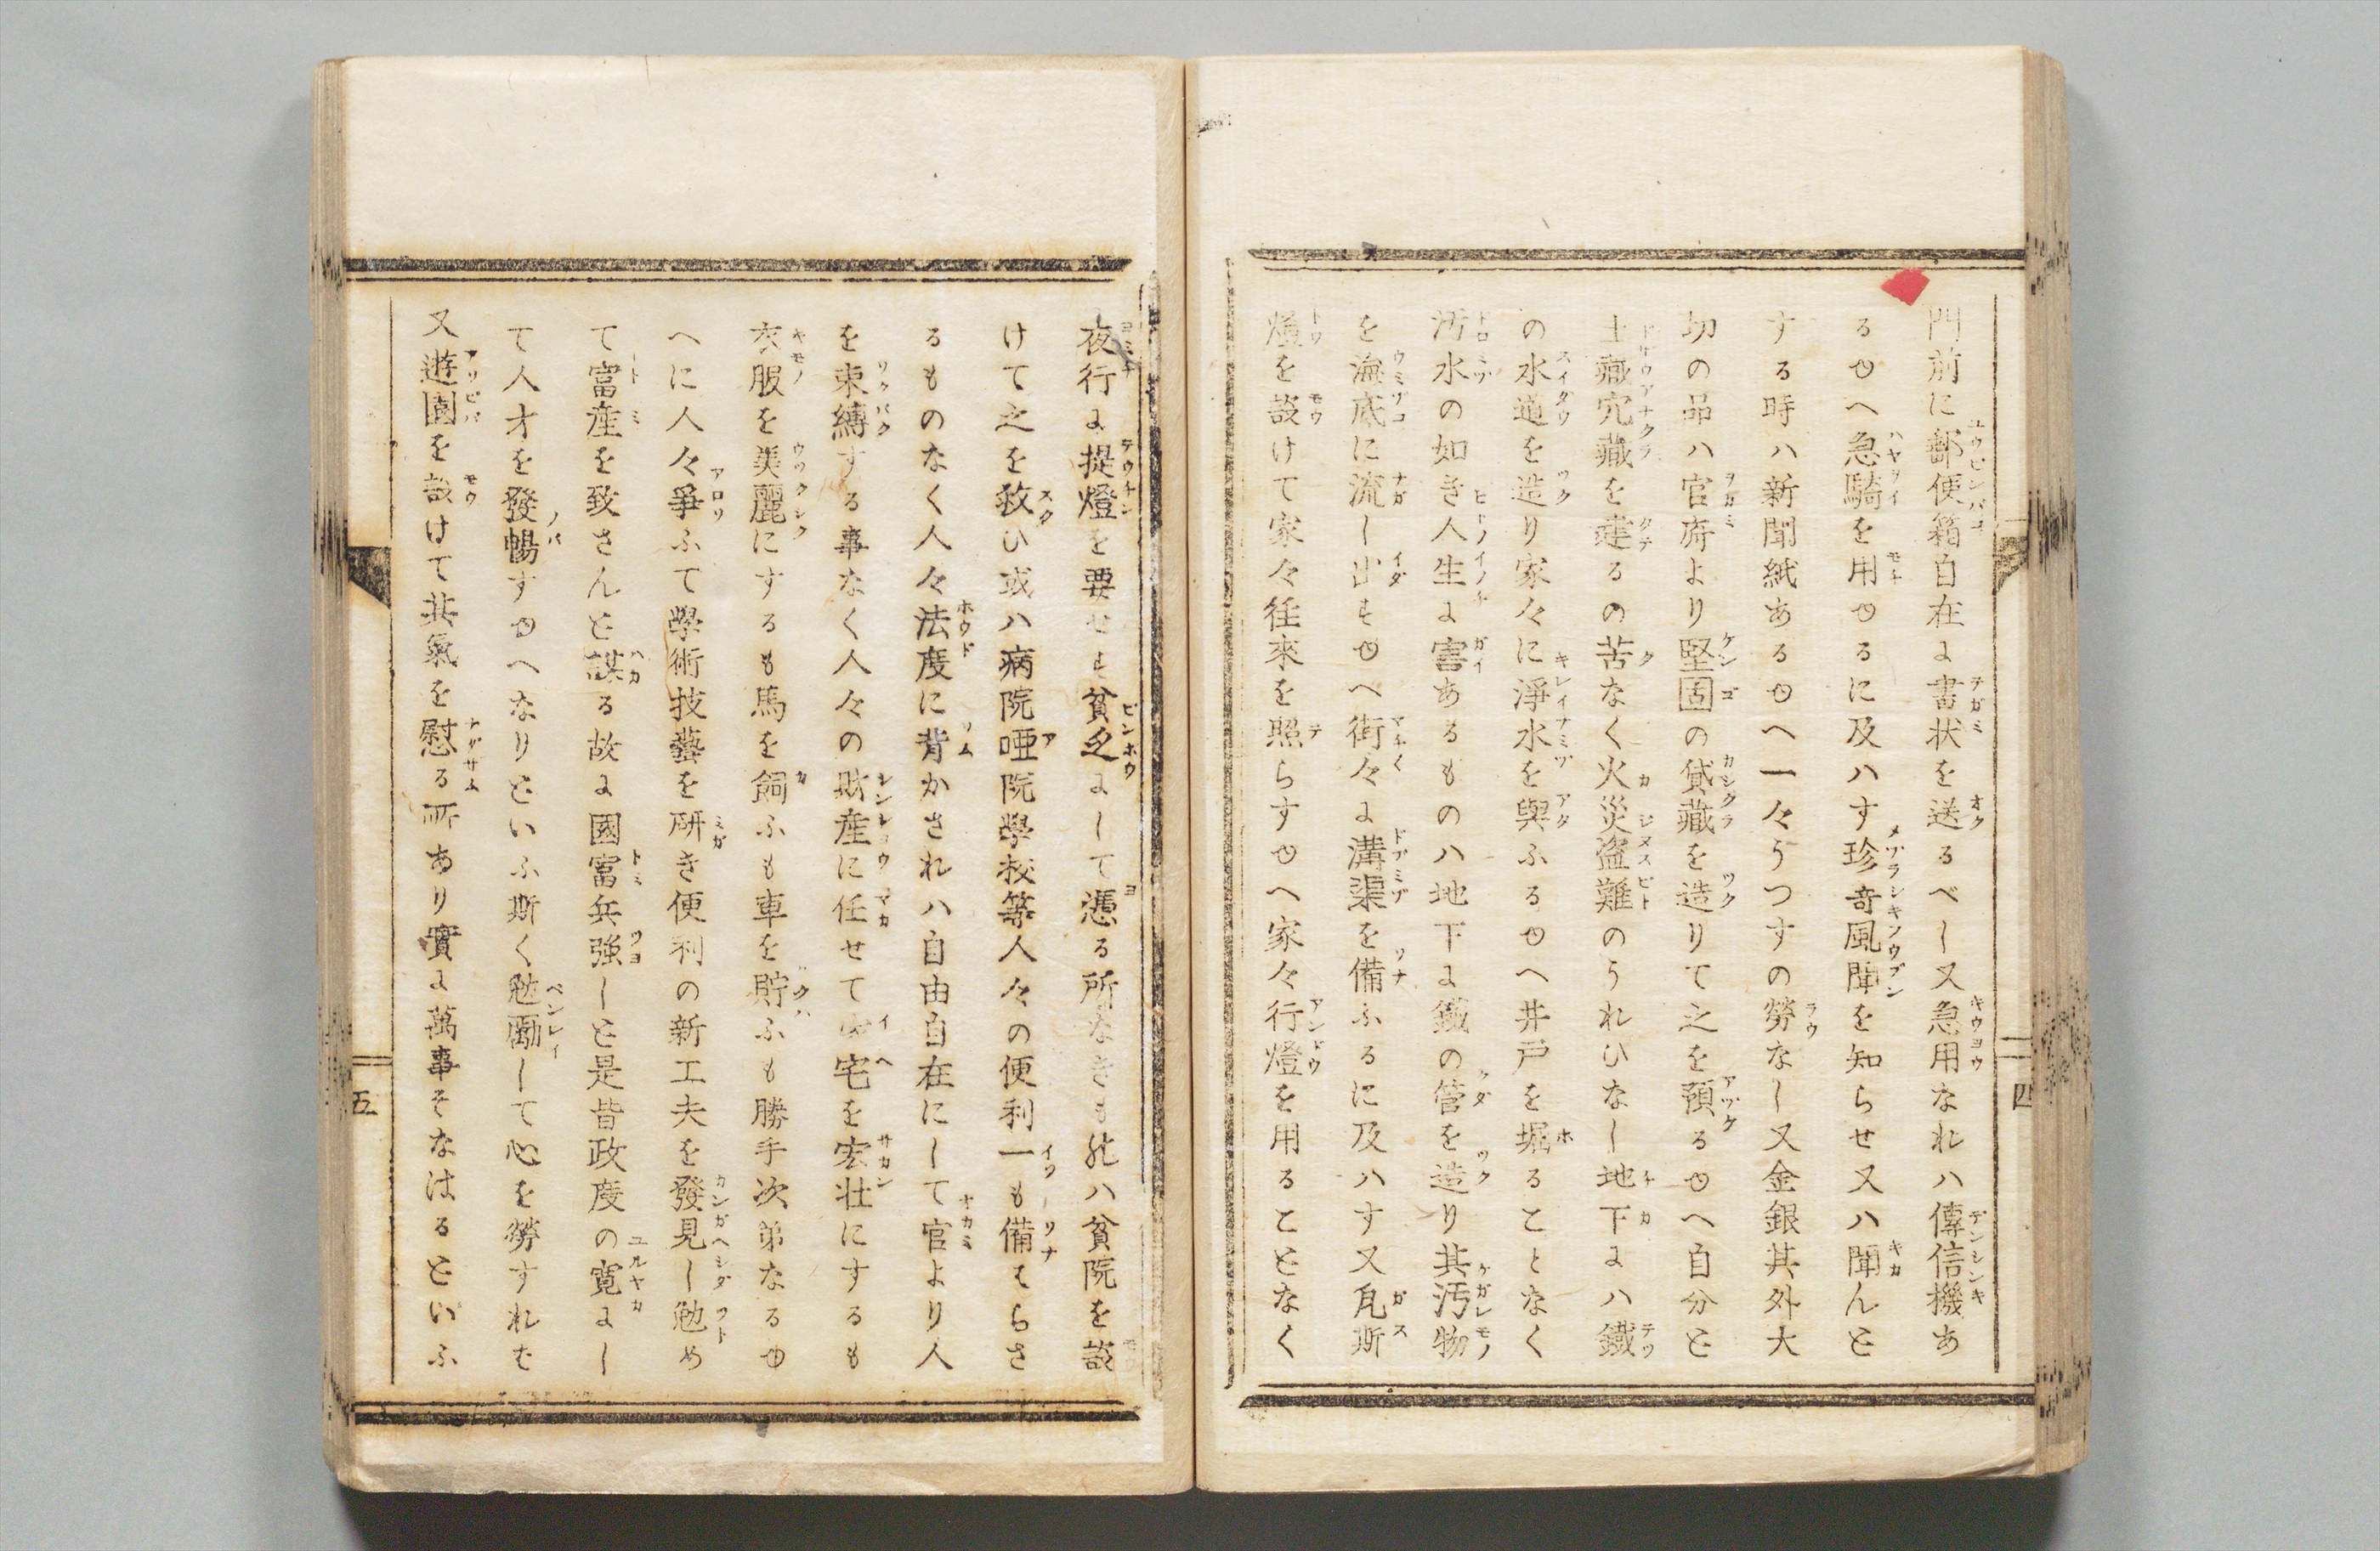 門前に郵便箱自在に書状を送るべし又急用なれハ傳信機あ
るゆへ急騎を用ゆるに及ハす珍奇風聞を知らせ又ハ聞んと
する時ハ新聞紙あるゆへ一々うつすの勞なし又金銀其外大
切の品ハ官府より堅固の貸藏を造りて之を預るゆへ自分と
土藏穴藏を建るの苦なく火災盗難のうれひなし地下にハ鐵
の水道を造り家々に淨水を與ふるゆへ井戸を堀ることなく
汚水の如き人生に害あるものハ地下に鐵の管を造り其汚物
を海底に流し出すゆへ街々に溝渠を備ふるに及ハす又瓦斯
燈を設けて家々往來を照らすゆへ家々行燈を用ることなく
四
夜行に提燈を要せす貧乏にして憑る所なきものハ貧院を設
けて之を救ひ或ハ病院唖院學校等人々の便利一も備はらさ
るものなく人々法度に背かされハ自由自在にして官より人
を束縛する事なく人々の財産に任せて家宅を宏壮にするも
衣服を美麗にするも馬を飼ふも車を貯ふも勝手次第なるゆ
へに人々爭ふて學術技藝を研き便利の新工夫を發見し勉め
て富産を致さんと謀る故に國富兵強しと是皆政度の寛にし
て人才を發暢すゆへなりといふ斯く勉勵して心を勞すれは
又遊園を設けて其氣を慰る所あり實に萬事そなはるといふ
五